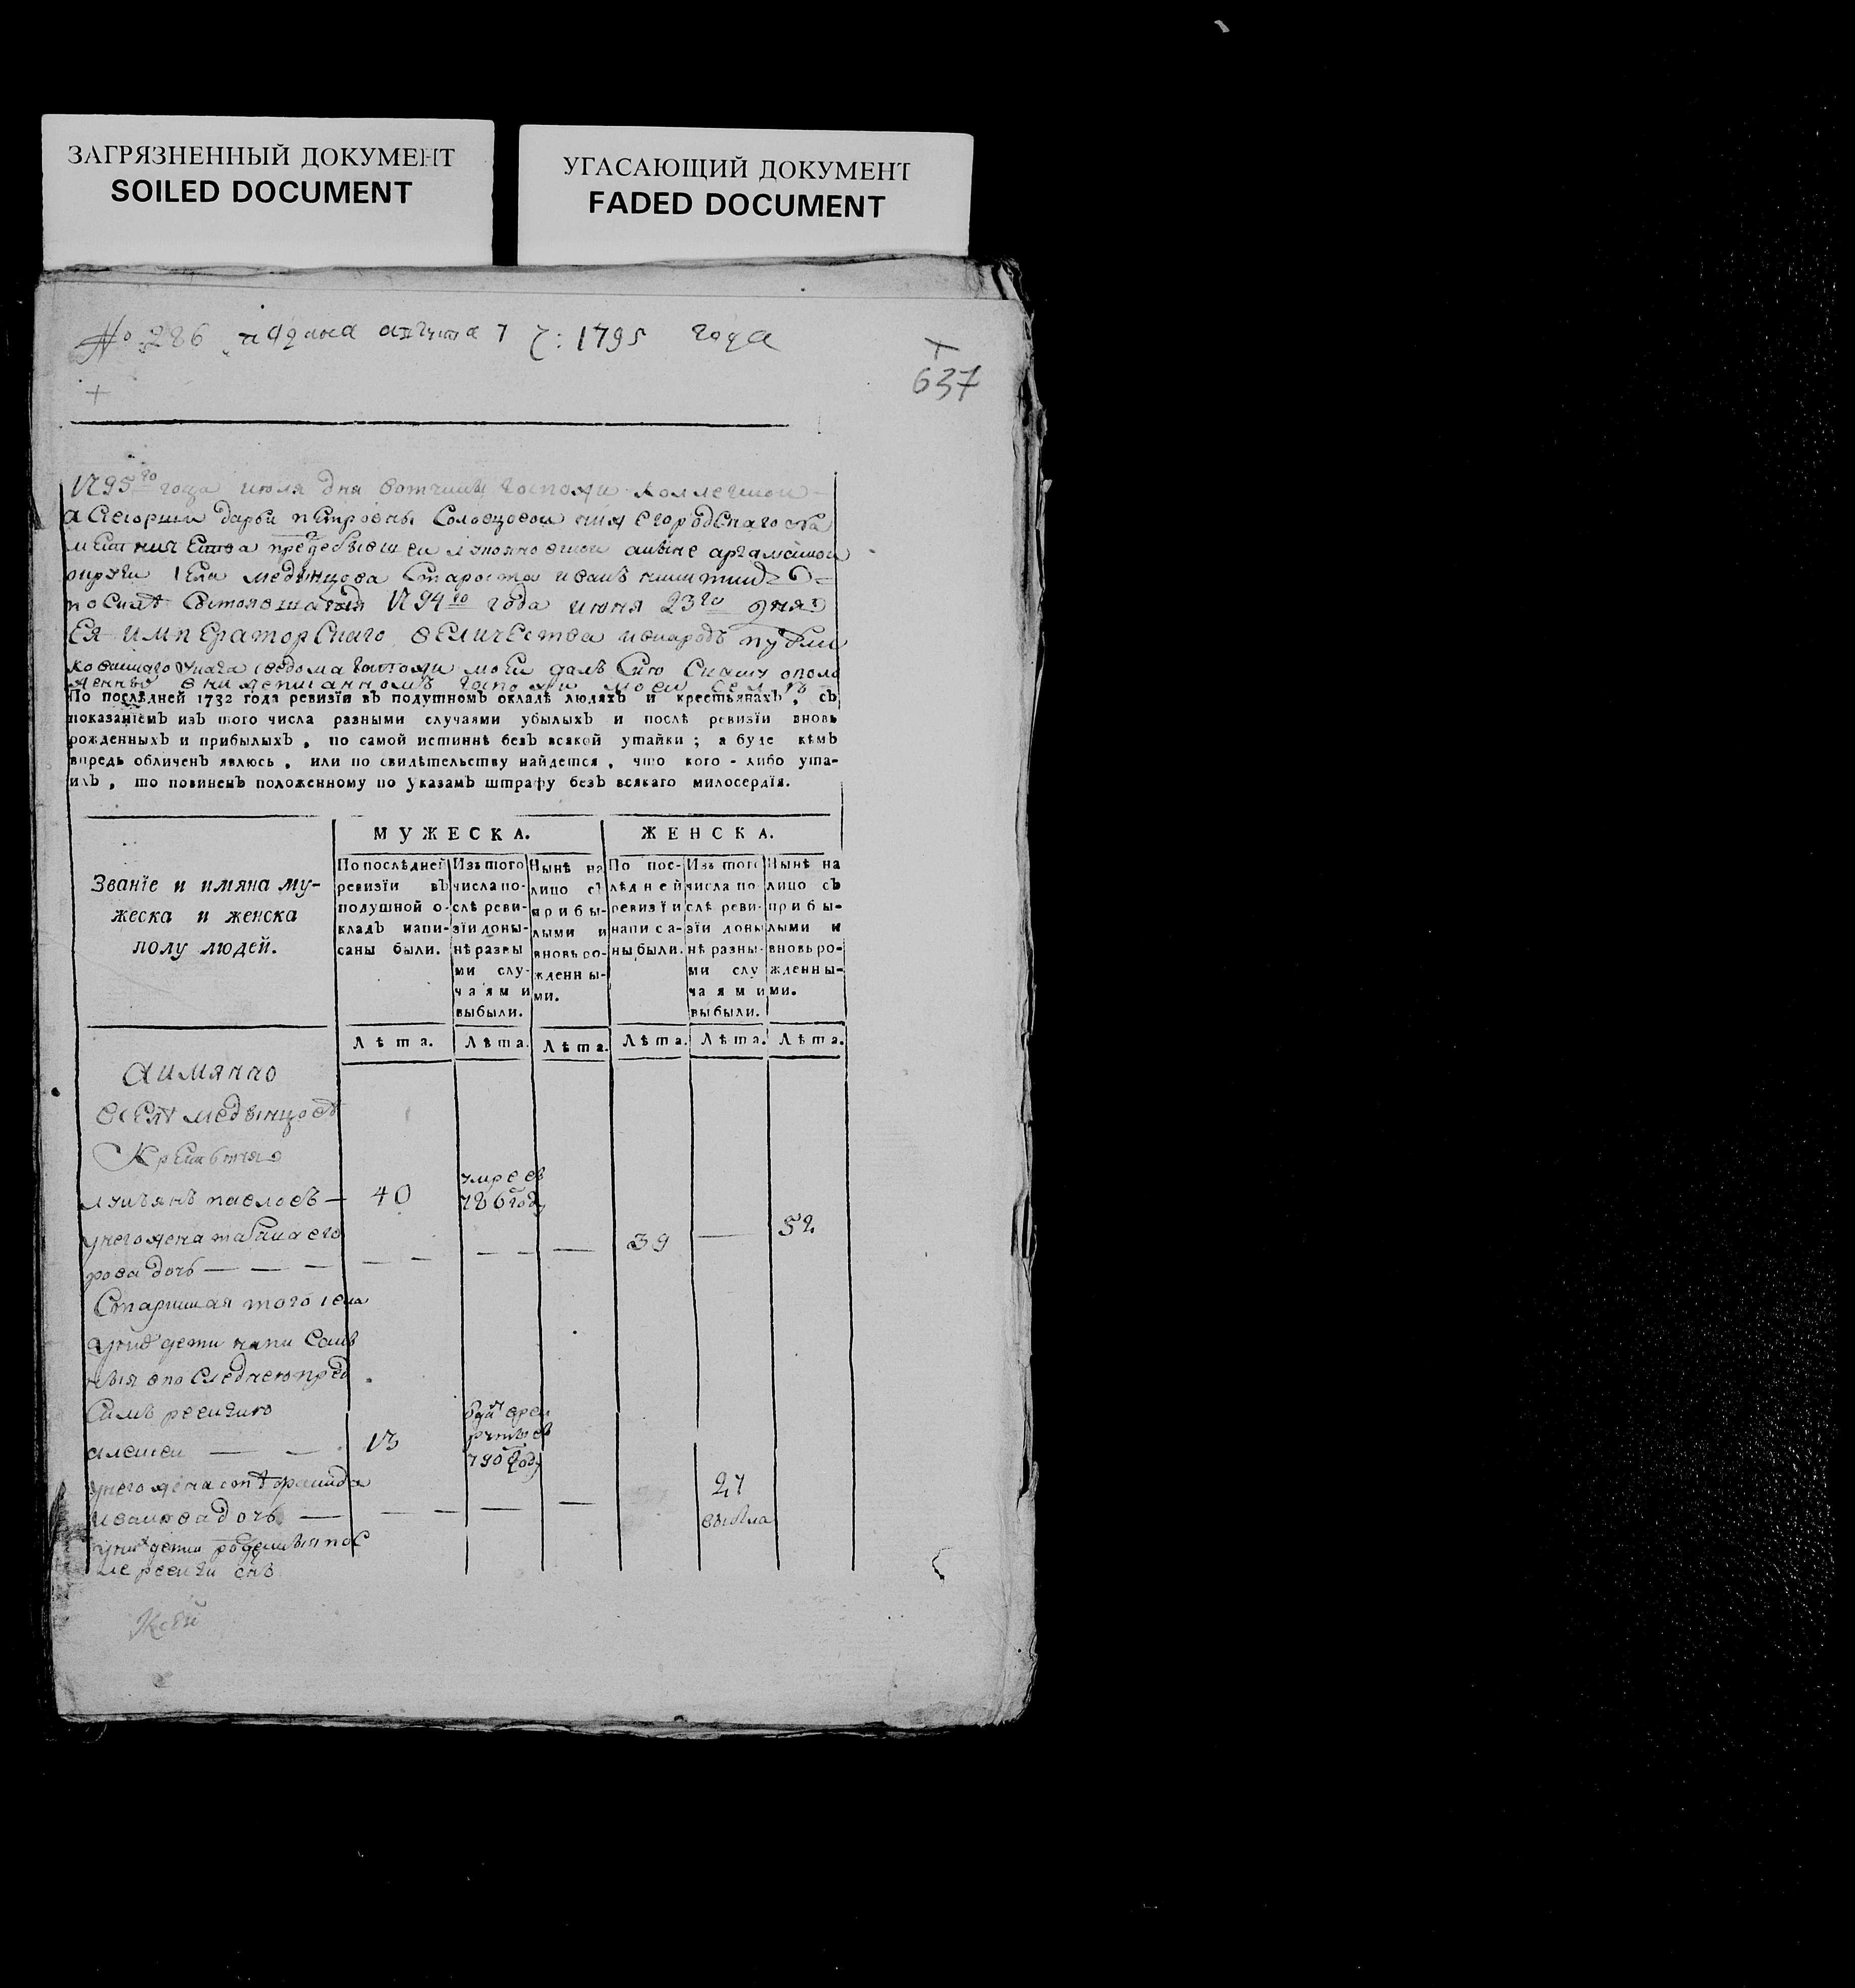 ЗАГРЯЗНЕННЫЙ ДОКУМЕНТ
SOILED DOCUMENT
УГАСАЮЩИЙ ДОКУМЕНТ
FADED DOCUMENT
№ 286 подана августа 7 ч: 1795 года
637
1795го года июля дня вотчины госпожи коллежской
асесорши дарьи петровны Соловцовой нижегородскаго
места арзамаской
округи села медынцова Староста иванъ никитинъ
по силе состоявшагося 1794го года июня 23го дня
Ея императорскаго величества и внародъ публи
кованнаго указа госпожи моей далъ сию Скаску
госпожи моей селѣ
По послѣдней 1782 года ревизїи въ подушномъ окладѣ людяхъ и крестьянахъ, съ
показанїемъ изъ того числа разными случаями убылыхъ и послѣ ревизїи вновь
рожденныхъ и прибылыхъ, по самой истиннѣ безъ всякой утайки; а буде кѣмъ
впредь обличенъ явлюсь, или по свидѣтельству найдется, что кого-либо ута-
илъ, то повиненъ положенному по указамъ штрафу безъ всякаго милосердїя.
МУЖЕСКА. ЖЕНСКА.
Званїе и имяна му-
жеска и женска
полу людей.
По послѣдней
ревизїи въ
подушной о-
кладъ напи-
саны были.
Изъ того
числа по-
слѣ реви-
зїи доны-
нѣ разны
ми слу-
чаями
выбыли.
Нынѣ на
лицо съ
прибы-
лыми и
вновь ро-
жденны-
ми.
По пос-
лѣдней
ревизїи
написа-
ны были.
Изъ того
числа по
слѣ реви-
зїи доны
нѣ разны-
ми слу
чаями
выбыли.
Нынѣ на
лицо съ
прибы-
лыми и
вновь ро-
жденны-
ми.
Лѣта. Лѣта. Лѣта. Лѣта. Лѣта. Лѣта.
а имянно
в селѣ медынцовѣ
Крестьяня
лукъянъ павловъ — 40 умре въ 786 году
у него жена его
рова дочь — 39 — 52
Старинная того села
у них дети написан
ныя в последнею пред
Симъ ревизию
алексей — 13 790 году
у него жена
иванова дочь — 27
у них дети рожденныя пос
ле ревизи